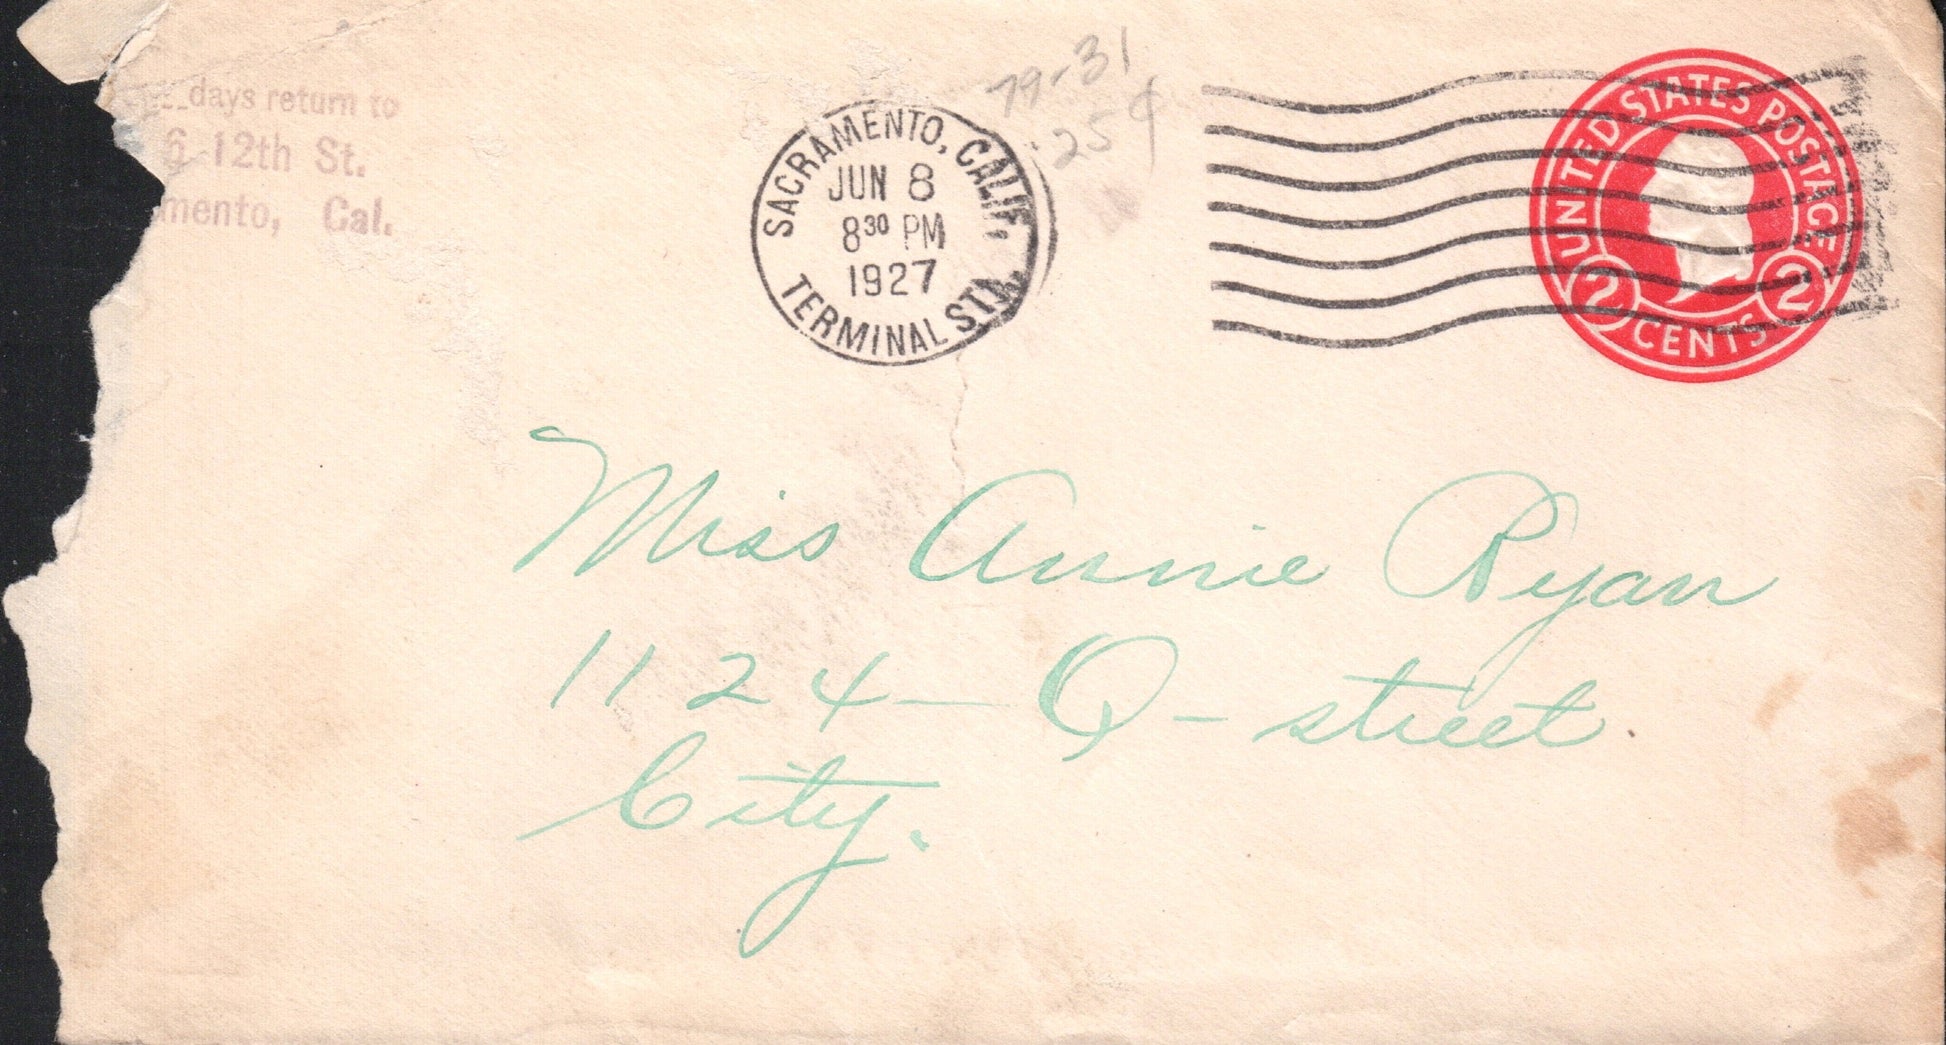 days return to
6-12th St.
mento, Cal.
SACRAMENTO, CALIF.
JUN 8
8 30 PM
1927
TERMINAL STA.
79-31
.25¢
UNITED STATES POSTAGE
2 CENTS 2
Miss Annie Ryan
1124- Q- street
City.